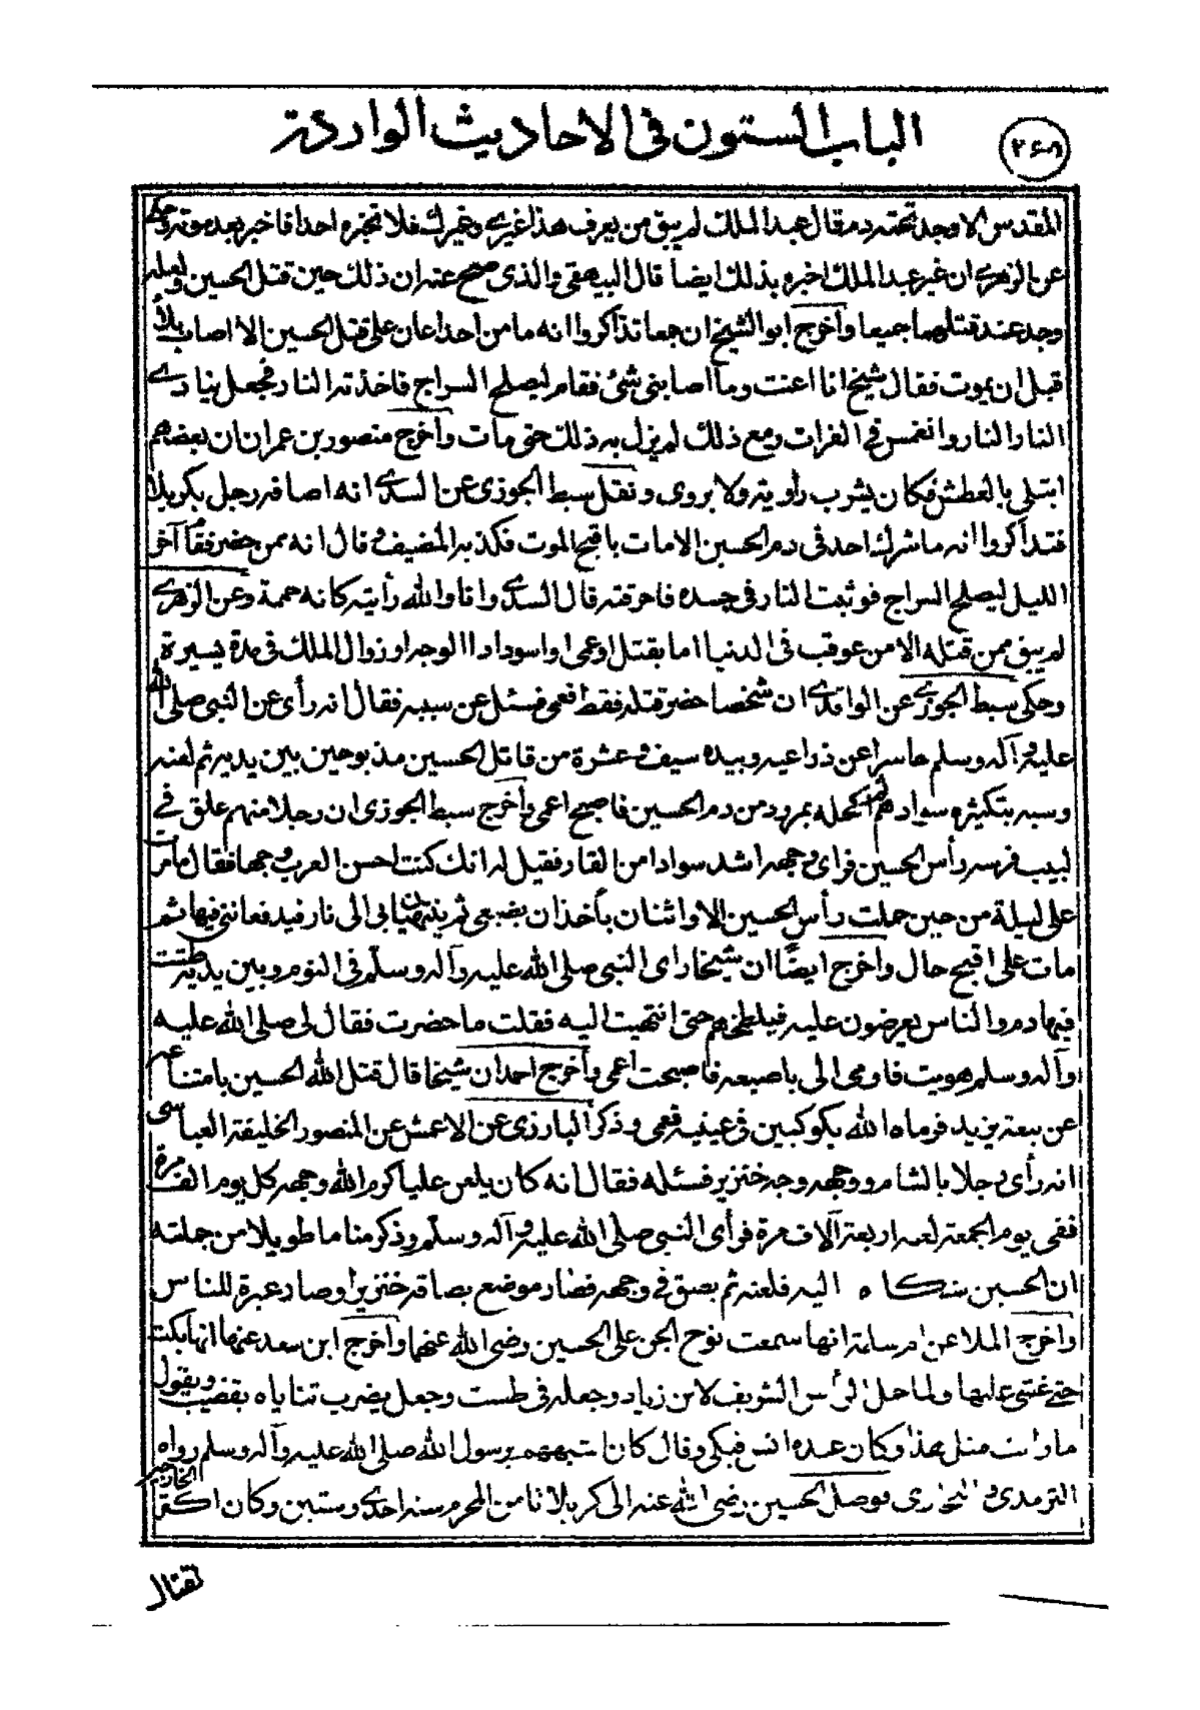 الباب الستون فى الاحاديث الواردة
٢٦٨
المقدس الا وجد تحته دم قال عبد الملك لم يبق من يعرف هذا غيرى وغيرك فلا تخبره احدا فاخبر بعد موته وحكى
عن الزهرى ان غير عبد الملك اخبره بذلك ايضا قال البيهقى والذى صح عنه ان ذلك حين قتل الحسين ولعله
وجد عند قتلهما جميعا وأخرج ابو الشيخ ان جمعا تذاكروا انه ما من احد اعان على قتل الحسين الا اصابه بلاء
قبل ان يموت فقال شيخ انا اعنت وما اصابنى شئ فقام ليصلح السراج فاخذته النار فجعل ينادى
النار النار وانغمس فى الفرات ومع ذلك لم يزل به ذلك حتى مات وأخرج منصور بن عمران ان بعضهم
ابتلى بالعطش فكان يشرب راوية ولا يروى ونقل سبط الجوزى عن السدى انه اضافه رجل بكربلا
فتذاكروا انه ما شرك احد فى دم الحسين الا مات باقبح الموت فكذبه المضيف وقال انه ممن حضر فقام آخر
الليل ليصلح السراج فوثبت النار فى جسده فاحرقته قال السدى وانا والله رأيته كانه حممة وعن الزهرى
لم يبق ممن قتله الا من عوقب فى الدنيا اما بقتل او عمى او اسوداد الوجه او زوال الملك فى مدة يسيرة
وحكى سبط الجوزى عن الواقدى ان شخصا حضر قتله فقط فعمى فسئل عن سببه فقال انه رأى عن النبى صلى الله
عليه وآله وسلم حاسرا عن ذراعيه وبيده سيف وعشرة من قاتل الحسين مذبوحين بين يديه ثم لعنه
وسبه بتكثيره سوادهم ثم اكحله بمرود من دم الحسين فاصبح اعمى وأخرج سبط الجوزى ان رجلا منهم علق فى
لبيب فرسه رأس الحسين فراى وجهه اشد سوادا من القار فقيل له انك كنت احسن العرب وجها فقال ما مرت
على ليلة من حين حملت رأس الحسين الا واثنان يأخذان بضبعى ثم ينتهيان بى الى نار فيدفعاننى فيها ثم
مات على اقبح حال وأخرج ايضًا ان شيخا راى النبى صلى الله عليه وآله وسلم فى النوم وبين يديه طشت
فيها دم والناس يعرضون عليه فيلطخهم حتى انتهيت اليه فقلت ما حضرت فقال لى صلى الله عليه
وآله وسلم هويت فاومى الى باصبعه فاصبحت اعمى وأخرج احمد ان شيخا قال قتل الله الحسين بامتناعه
عن بيعة يزيد فرماه الله بكوكبين فى عينيه فعمى وذكر البارزى عن الاعمش عن المنصور الخليفة العباسى
انه رأى رجلا بالشام ووجهه وجه خنزير فسئله فقال انه كان يلعن عليا كرم الله وجهه كل يوم الف مرة
ففى يوم الجمعة لعنه اربعة آلاف مرة فرأى النبى صلى الله عليه وآله وسلم وذكر مناما طويلا من جملته
ان الحسين شكاه اليه فلعنه ثم بصق فى وجهه فصار موضع بصاقه خنزيرا وصار عبرة للناس
وأخرج الملا عن ام سلمة انها سمعت نوح الجن على الحسين رضى الله عنهما وأخرج ابن سعد عنها انها بكت
حتى غشى عليها ولما حمل الرأس الشريف لابن زياد وجعله فى طست وجعل يضرب ثناياه بقضيب ويقول
ما رأيت مثل هذا وكان عنده انس فبكى وقال كان اشبههم برسول الله صلى الله عليه وآله وسلم رواه
الترمذى والبخارى ووصل الحسين رضى الله عنه الى كربلا ثامن المحرم سنه احدى وستين وكان اكثر الخارجين
لقتال